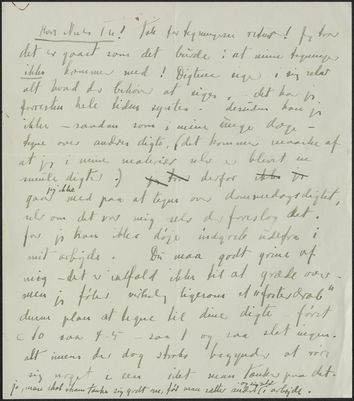 Hors Niels Tu! Tak for tegningerne retur! Jeg tror
det er gaaet som det burde: at mine tegninger
ikke kommer med! Digtene siger i sig selv
alt hvad der behøver at siges, - det har jeg
forresten hele tiden syntes - desuden kan jeg
ikke - saadan som i mine unge dage -
tegne over andres digte, (det kommer maaske af
at jeg i mine malerier selv er blevet en
smule digter :) derfor
jeg ikke
gaar med paa at tegne over dommedagsdigtet,
selv om det var mig selv der foreslog det.
for jeg kan ikke døje indgreb udefra i
mit arbejde. Du maa godt grine af
mig - det er ialfald ikke til at græde over -
men jeg føler virkelig ligesom et "fosterdrab"
denne plan at tegne til dine digte - først
c 10 saa 4-5 - saa 1 og saa slet ingen.
alt imens der dog straks begynder at røre
sig noget i een idet man tænker paa det.
jo, man skal tænke sig godt om, før man sætter andet i arbejde.